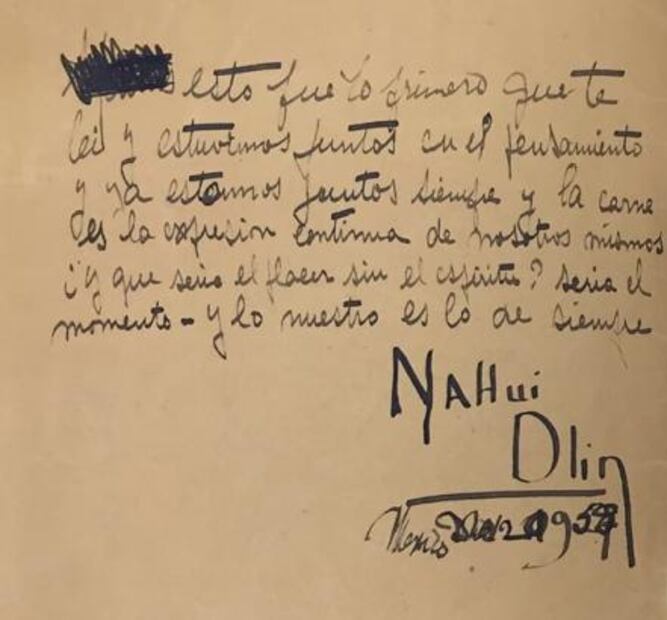 esto fue lo primero que te
lei y estuvimos juntos en el pensamiento
y ya estamos juntos siempre y la carne
es la expresion continua de nosotros mismos
¿y que seria el placer sin el espiritu? seria el
momento - y lo nuestro es lo de siempre
NAHui
Olin
Mexico